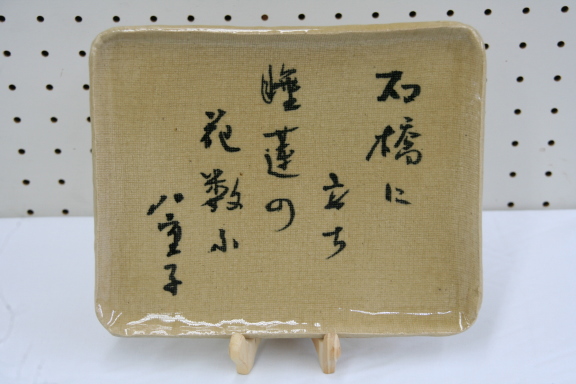 石橋に
立ち
睡蓮の
花数ふ
八重子